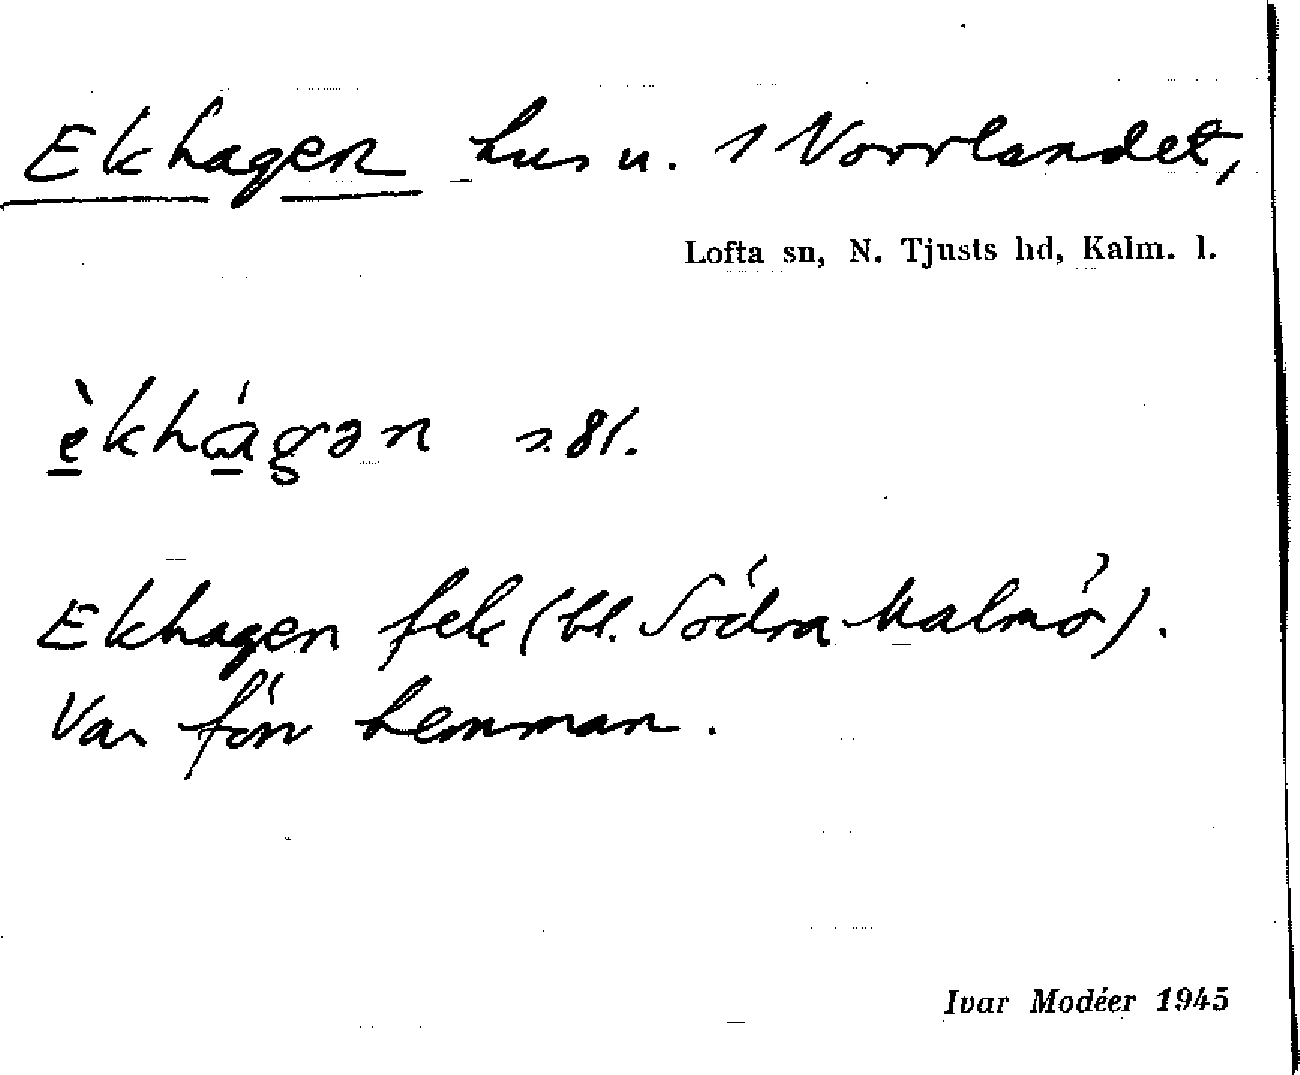 Ekhagen hus u. 1 Norrlandet,
Lofta sn, N. Tjusts hd, Kalm. l.
è̱khá̱gən s. 81.
Ekhagen fek (bl. Södra Malmö).
Var förr hemman.
Ivar Modéer 1945